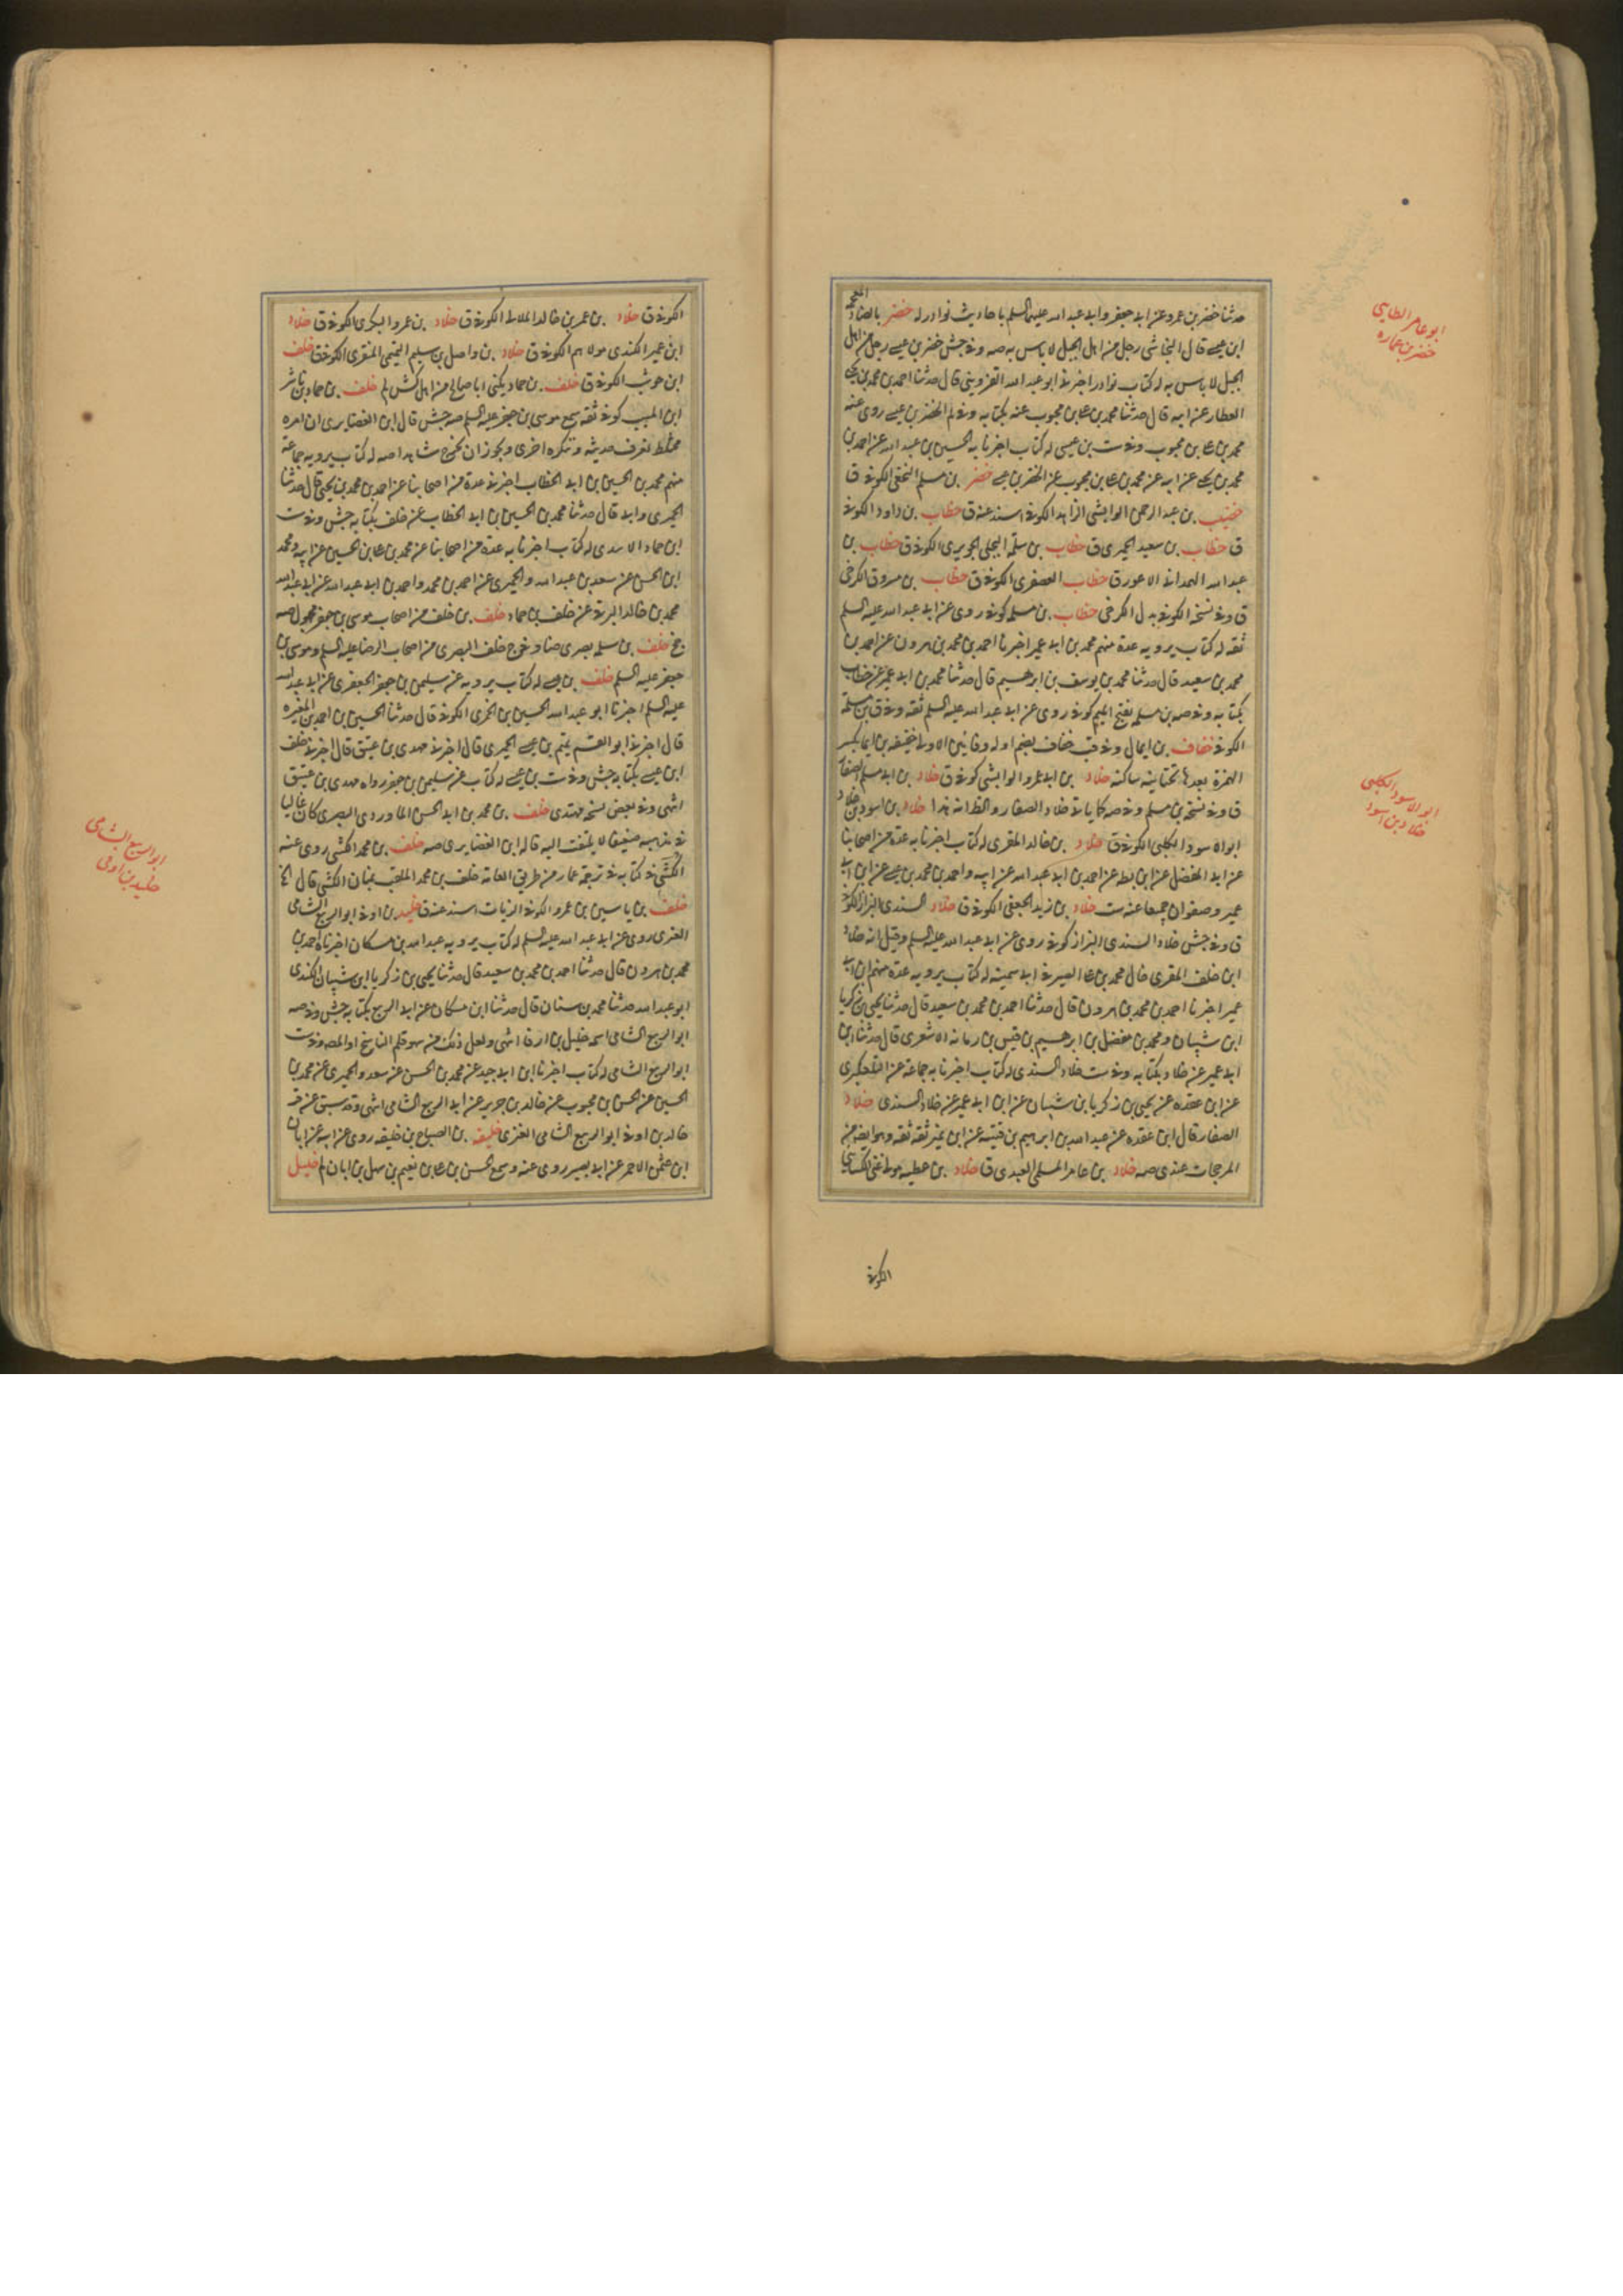 حدثنا خضر بن عمرو عن ابي جعفر وابي عبد الله عليهما السلم باحاديث نوادر له خضر بالضاد المعجمة
ابن عيسى قال النجاشى رجل من اهل الجبل لا باس به صه وفي جش خضر بن عيسى رجل من اهل
الجبل لا باس به له كتاب نوادر اخبرني ابو عبد الله القزويني قال حدثنا احمد بن محمد بن يحيى
العطار عن ابيه قال حدثنا محمد بن على بن محبوب عنه بكتابه وفي لم الخضر بن عيسى روى عنه
محمد بن على بن محبوب وفي ست بن عيسى له كتاب اخبرنا به الحسين بن عبد الله عن احمد بن
محمد بن يحيى عن ابيه عن محمد بن على بن محبوب عن الخضر بن عيسى خضر بن مسلم النخعى الكوفى ق
خضيب بن عبد الرحمن الوابشى الزاهد الكوفى اسند عنه ق خطاب بن داود الكوفى
ق خطاب بن سعيد الحميرى ق خطاب بن سلمة البجلى الجريرى الكوفى ق خطاب بن
عبد الله الهمدانى الاعور ق خطاب العصفرى الكوفى ق خطاب بن مسروق الكرخى
ق وفي نسخة الكوفى بدل الكرخى خطاب بن مسلمه كوفى روى عن ابي عبد الله عليه السلم
ثقه له كتاب يرويه عدة منهم محمد بن ابي عمير اخبرنا احمد بن محمد بن هرون عن احمد بن
محمد بن سعيد قال حدثنا محمد بن يوسف بن ابرهيم قال حدثنا محمد بن ابي عمير عن خطاب
بكتابه وفي صه بن مسلمه بفتح الميم كوفى روى عن ابي عبد الله عليه السلم ثقه وفي ق بن مسلمة
الكوفى خفاف بن ايمال وفي قب خفاف بضم اوله وفائين الاولى خفيفه بن ايما بكسر
الهمزة بعدها تحتانيه ساكنة خلاد بن ابي عمرو الوابشى كوفى ق خلاد بن ابي مسلم الصفار
ق وفي نسخة بن مسلم وفي صه كما ياتى خلاد الصفار والظ انه هذا خلاد بن اسود بن خلاد
ابو الاسود الكلبى الكوفى ق خلاد بن خالد المقرى له كتاب اخبرنا به عدة من اصحابنا
عن ابي المفضل عن ابن بطه عن احمد بن ابي عبد الله عن ابيه واحمد بن محمد بن عيسى عن ابن ابي
عمير وصفوان جميعا عنه ست خلاد بن زيد الجعفى الكوفى ق خلاد السندى البزاز الكوفى
ق وفي جش خلاد السندى البزاز كوفى روى عن ابي عبد الله عليه السلم وقيل انه خلاد
ابن خلف المقرى خال محمد بن على الصيرفى ابي سمينه له كتاب يرويه عدة منهم ابن ابي
عمير اخبرنا احمد بن محمد بن هرون قال حدثنا احمد بن محمد بن سعيد قال حدثنا يحيى بن زكريا
ابن شيبان ومحمد بن مفضل بن ابرهيم بن قيس بن رمانه الاشعرى قال حدثنا ابن
ابي عمير عن خلاد بكتابه وفي ست خلاد السندى له كتاب اخبرنا به جماعة عن التلعكبرى
عن ابن عقده عن يحيى بن زكريا بن شيبان عن ابن ابي عمير عن خلاد السندى خلاد
الصفار قال ابن عقده عن عبد الله بن ابرهيم بن قتيبه عن ابن نمير ثقه ثقه وهو ايضا من
المرجحات عندى صه خلاد بن عامر المسلمى العبدى ق خلاد بن عطيه مولى غنى
الكوفى
ابو عامر الطايى
خضر بن عماره
ابو الاسود الكلبى
خلاد بن اسود
الكوفى ق خلاد بن عمر بن خالد الملائى الكوفى ق خلاد بن عمرو البكرى الكوفى ق خلاد
ابن عمير الكندى مولاهم الكوفى ق خلاد بن واصل بن سليم التميمى المنقرى الكوفى ق خلف
ابن حوشب الكوفى ق خلف بن حماد يكنى ابا صالح من اهل كش لم خلف بن حماد بن ناشر
ابن المسيب كوفى ثقه سمع موسى بن جعفر عليه السلم صه جش قال ابن الغضايرى ان امره
مختلط نعرف حديثه وتنكره اخرى ويجوز ان يخرج شاهدا صه له كتاب يرويه جماعة
منهم محمد بن الحسين بن ابي الخطاب اخبرنى عدة من اصحابنا عن احمد بن محمد بن يحيى قال حدثنا
الحميرى وابي قال حدثنا محمد بن الحسين بن ابي الخطاب عن خلف بكتابه جش وفي ست
ابن حماد الاسدى له كتاب اخبرنا به عدة من اصحابنا عن محمد بن على بن الحسين عن ابيه ومحمد
ابن الحسن عن سعد بن عبد الله والحميرى عن احمد بن محمد واحمد بن ابي عبد الله عن ابي عبد الله
محمد بن خالد البرقى عن خلف بن حماد خلف بن خلف من اصحاب موسى بن جعفر مجهول صه
جخ خلف بن سلمه بصرى ضا وفي جخ خلف البصرى من اصحاب الرضا عليه السلم وموسى بن
جعفر عليه السلم خلف بن عيسى له كتاب يرويه عن سليمن بن جعفر الجعفرى عن ابي عبد الله
عليه السلم اخبرنا ابو عبد الله الحسين بن الخمرى الكوفى قال حدثنا الحسين بن احمد بن المغيره
قال اخبرنى ابو القسم يتيم بن عيسى الحميرى قال اخبرنى مهدى بن عتيق قال اخبرنى خلف
ابن عيسى بكتابه جش وفي ست بن عيسى له كتاب عن سليمن بن جعفر رواه مهدى بن عتيق
انتهى وفي بعض نسخه مهتدى خلف بن محمد بن ابي الحسن الماوردى البصرى كان غاليا
في مذهبه ضعيفا لا يلتفت اليه قاله ابن الغضايرى صه خلف بن محمد الكشى روى عنه
الكشى في كتابه في ترجمة عمار من طريق العامة خلف بن محمد الملقب بمنان الكشى قال الخ
خلف بن ياسين بن عمرو الكوفى الزيات اسند عنه ق خليد بن اوفى ابو الربيع الشامى
العنزى روى عن ابي عبد الله عليه السلم له كتاب يرويه عبد الله بن مسكان اخبرناه احمد بن
محمد بن هرون قال حدثنا احمد بن محمد بن سعيد قال حدثنا يحيى بن زكريا ابن شيبان الكندى
ابو عبد الله حدثنا محمد بن سنان قال حدثنا ابن مسكان عن ابي الربيع بكتابه جش وفي صه
ابو الربيع الشامى اسمه خليل بن اوفى انتهى ولعل ذلك من سهو قلم الناسخ او المصه وفي ست
ابو الربيع الشامى له كتاب اخبرنا ابن ابي جيد عن محمد بن الحسن عن سعد والحميرى عن محمد بن
الحسين عن الحسن بن محبوب عن خالد بن جرير عن ابي الربيع الشامى انتهى وقد سبق عن قر
خالد بن اوفى ابو الربيع الشامى العنزى خليفه بن الصباح بن خليفه روى عن ابيه عن ابان
ابن عثمن الاحمر عن ابي بصير روى عنه وسمع الحسن بن على بن نعيم بن سهل بن ابان لم خليل
ابو الربيع الشامى
خليد بن اوفى